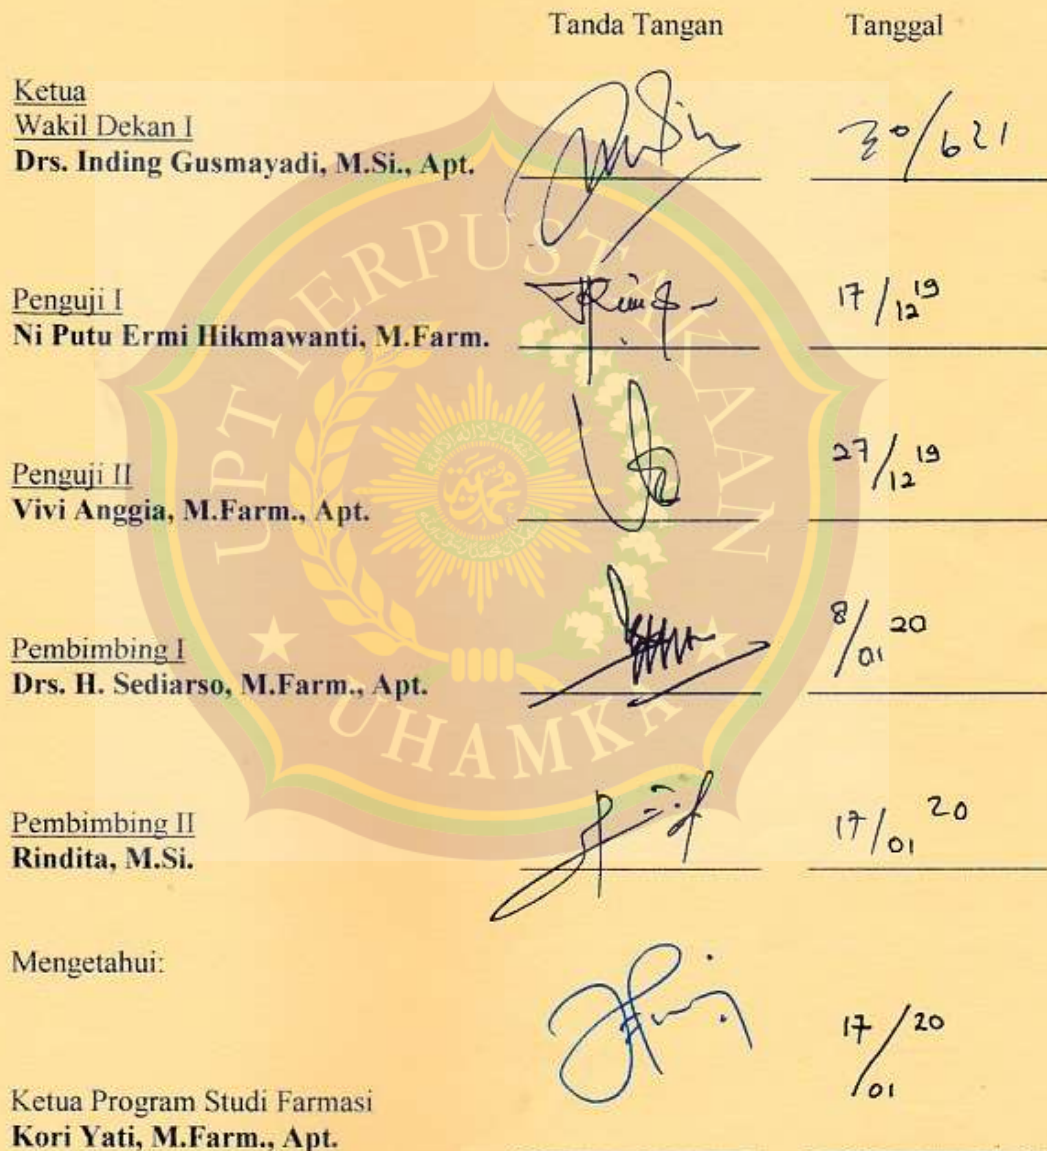 Tanda Tangan Tanggal
Ketua
Wakil Dekan I
Drs. Inding Gusmayadi, M.Si., Apt. 30/6 21
Penguji I
Ni Putu Ermi Hikmawanti, M.Farm. 17/12 19
Penguji II
Vivi Anggia, M.Farm., Apt. 27/12 19
Pembimbing I
Drs. H. Sediarso, M.Farm., Apt. 8/01 20
Pembimbing II
Rindita, M.Si. 17/01 20
Mengetahui:
Ketua Program Studi Farmasi
Kori Yati, M.Farm., Apt. 17/01 20
UPT PERPUSTAKAAN
UHAMKA